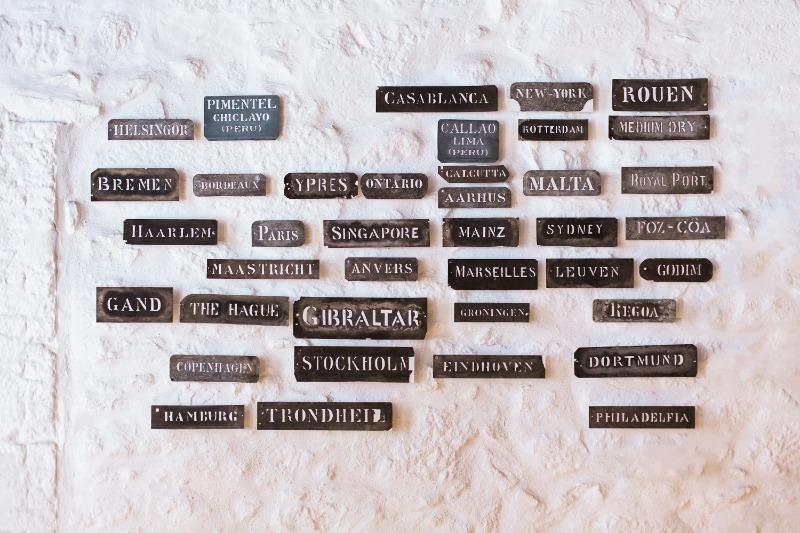 CASABLANCA
NEW-YORK
ROUEN
PIMENTEL
CHICLAYO
(PERU)
HELSINGÖR
CALLAO
LIMA
(PERU)
ROTTERDAM
MEDIUM DRY
BREMEN
BORDEAUX
YPRES
ONTARIO
CALCUTTA
AARHUS
MALTA
ROYAL PORT
HAARLEM.
PARIS
SINGAPORE
MAINZ
SYDNEY
FOZ-CÔA
MAASTRICHT
ANVERS
MARSEILLES
LEUVEN
GODIM
GAND
THE HAGUE
GIBRALTAR
GRONINGEN.
REGOA
COPENHAGEN
STOCKHOLM
EINDHOVEN
DORTMUND
HAMBURG
TRONDHEIL
PHILADELFIA